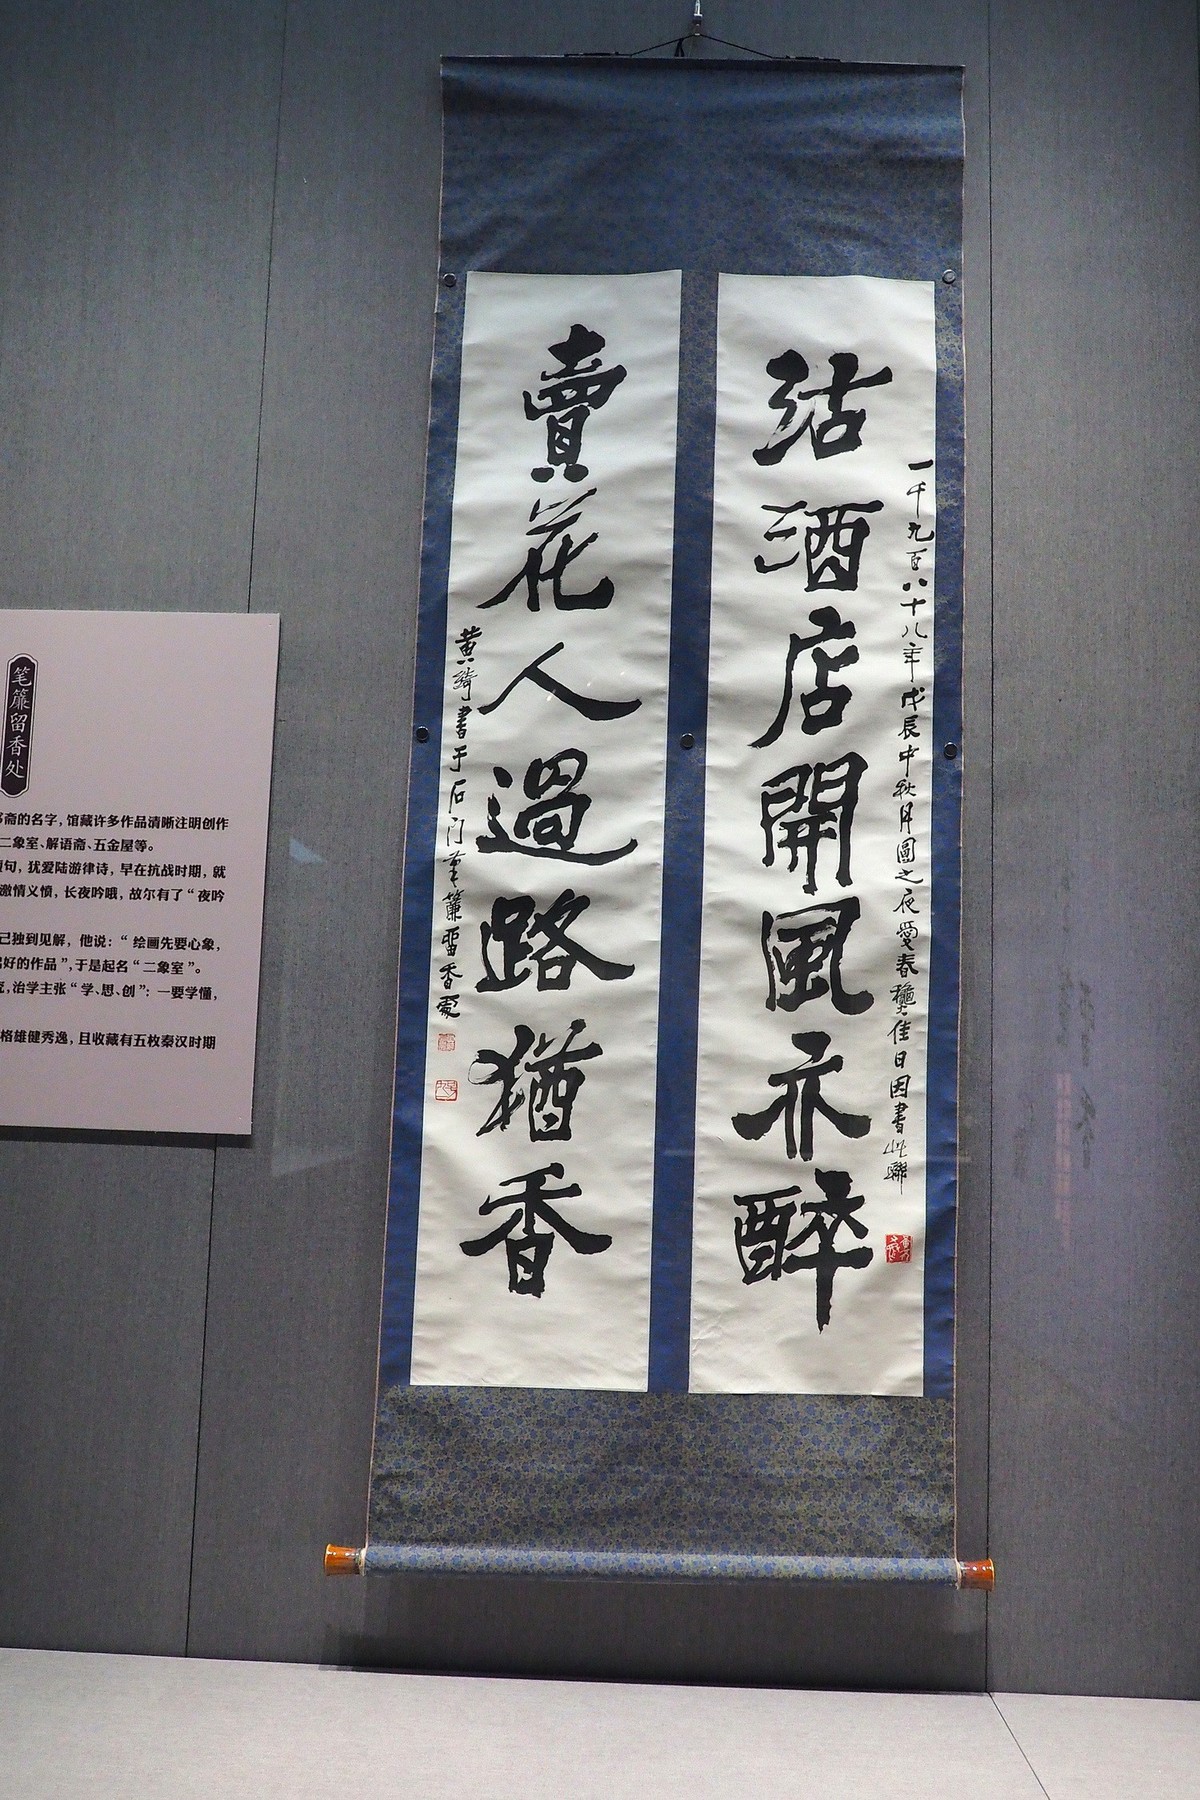 沽酒店開風亦醉
一千九百八十八年戊辰中秋月圓之夜愛春 佳日因書此聯
賣花人過路猶香
黄綺書于石门筆簾留香處
笔簾留香处
斋的名字，馆藏许多作品清晰注明创作
二象室、解语斋、五金屋等。
句，犹爱陆游律诗，早在抗战时期，就
激情义愤，长夜吟哦，故尔有了“夜吟
己独到见解，他说：“绘画先要心象，
好的作品”，于是起名“二象室”。
，治学主张“学、思、创”：一要学懂，
格雄健秀逸，且收藏有五枚秦汉时期